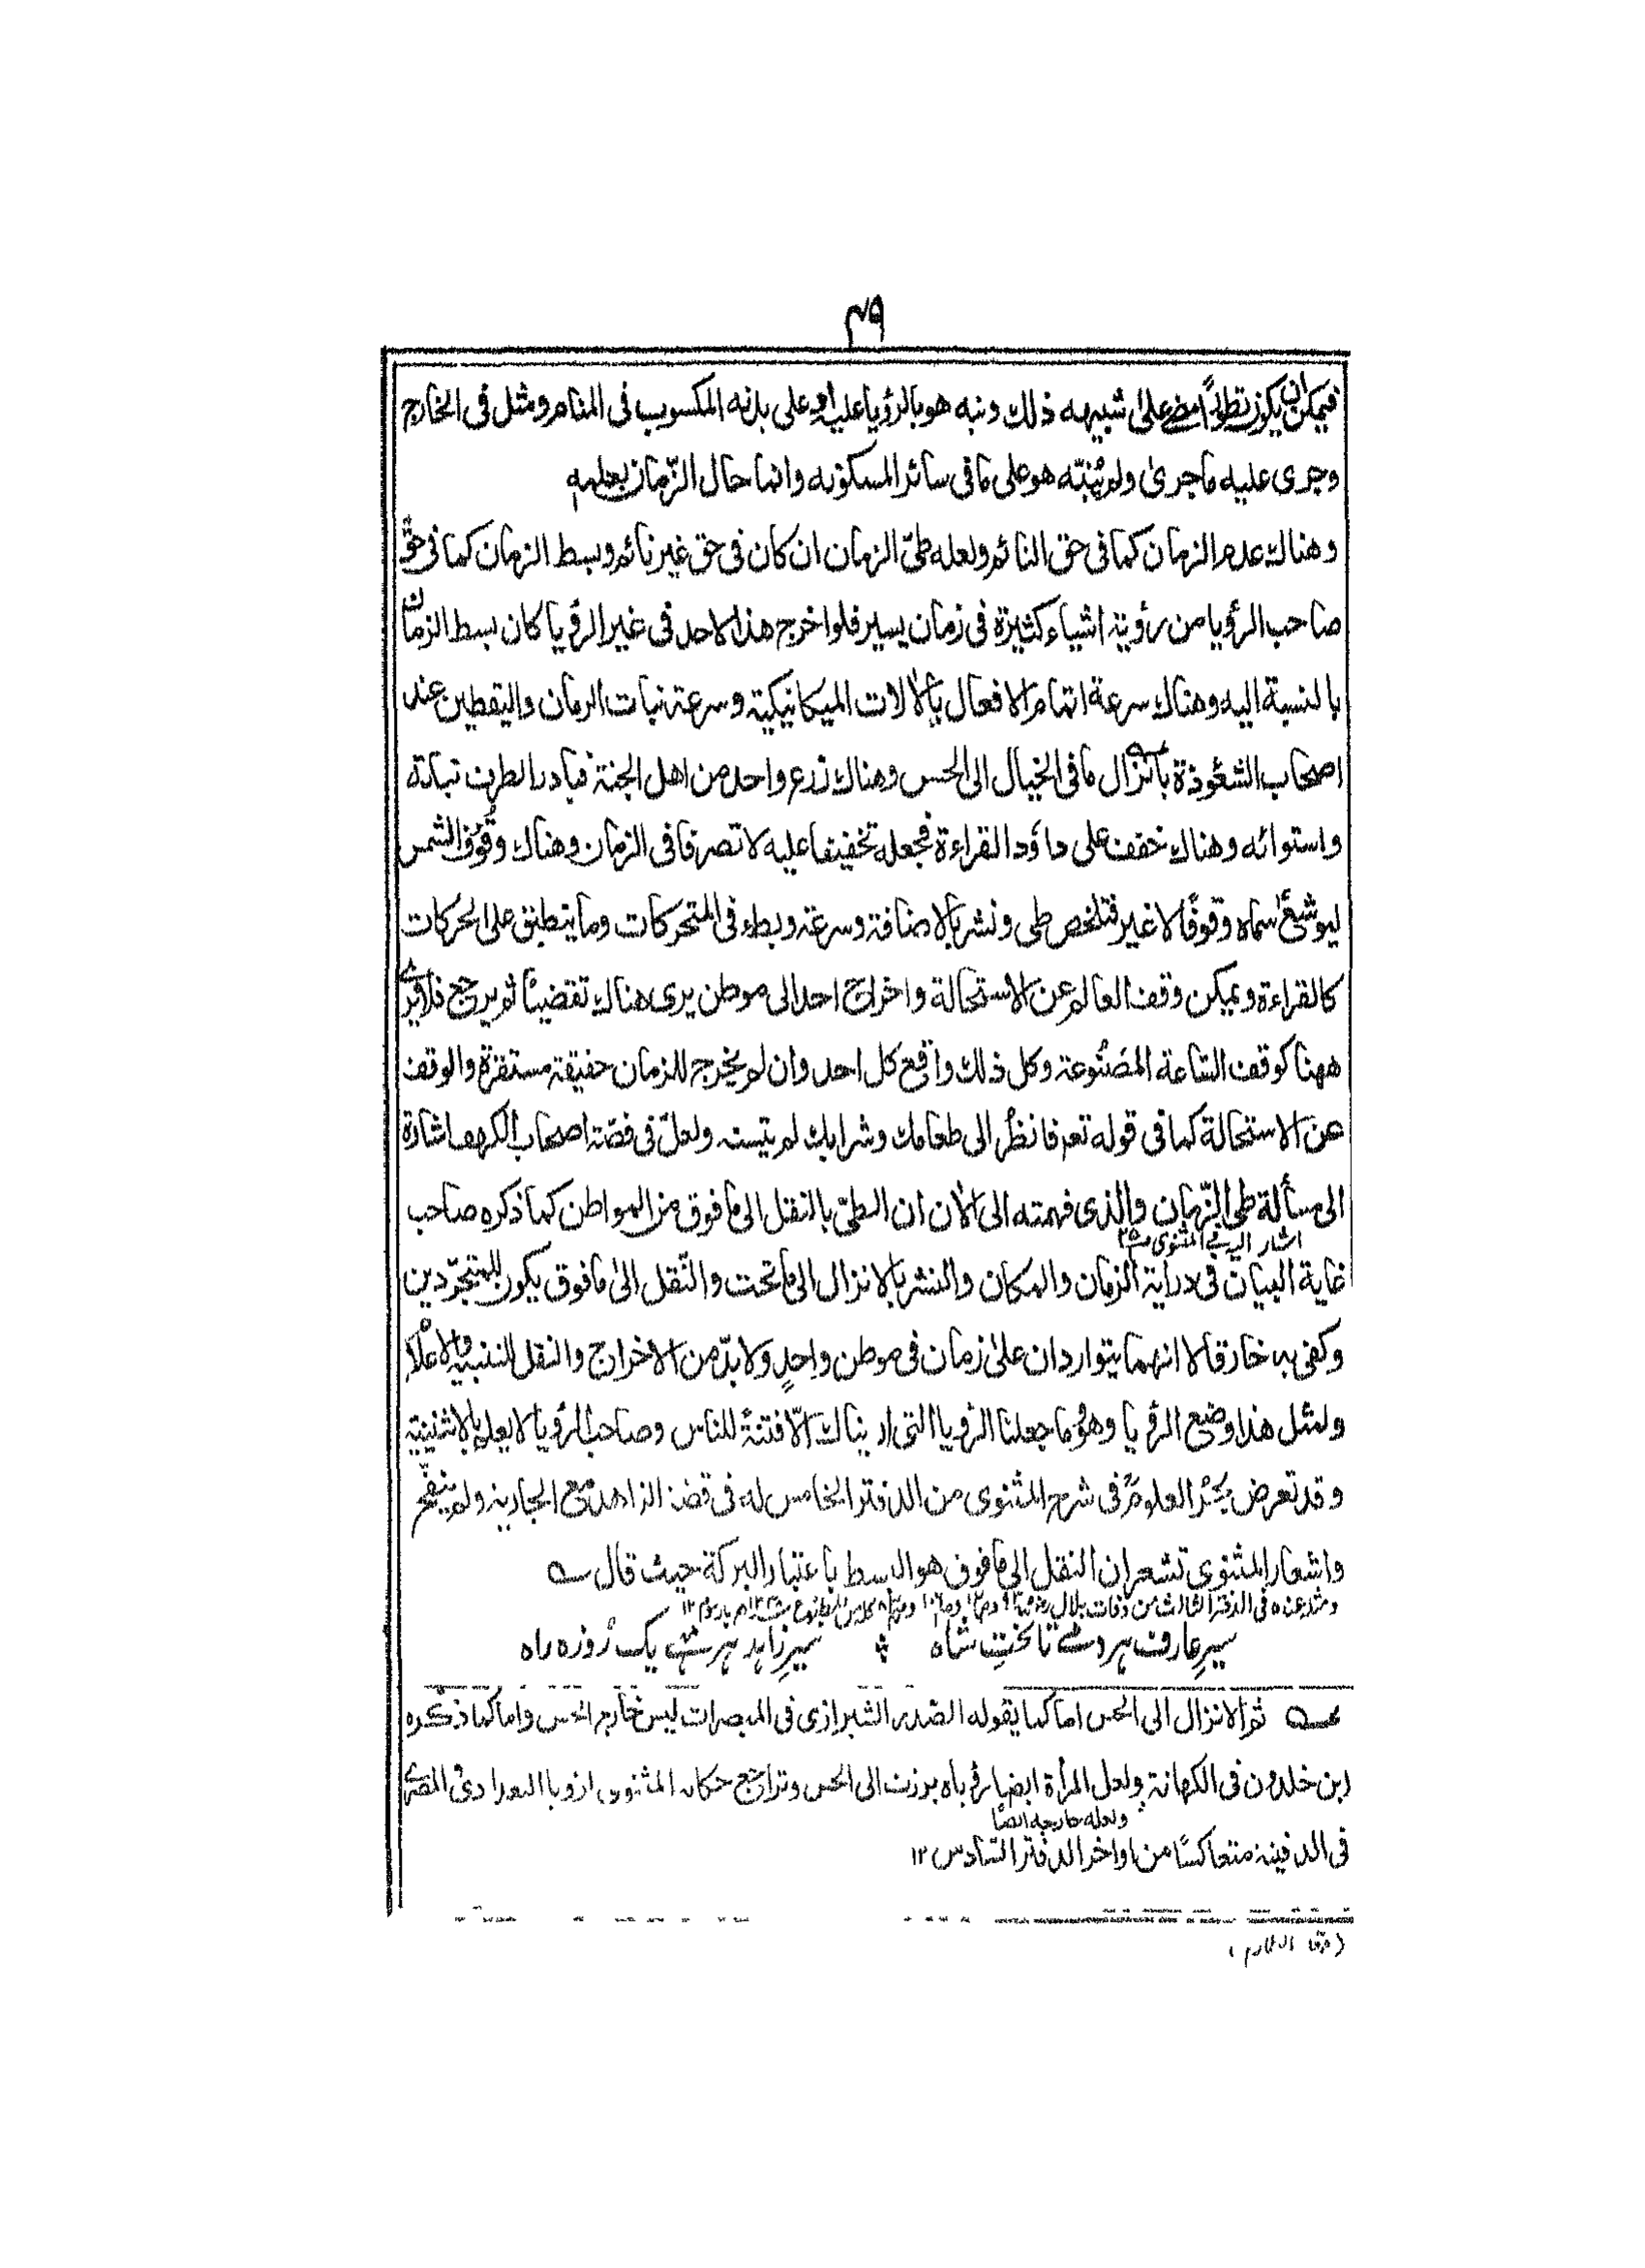 ٤٩
فيمكن ان يكون تطورًا مضى على شبيهه ذلك ونبه هو بالرؤيا عليه او على بدنه المكسوب فى المنام ومثل فى الخارج
وجرى عليه ما جرى ولم يُنبّه هو على ما فى سائر المسكونه وانما حال الزّمان بعلمه
وهناك عدم الزمان كما فى حق النائم ولعله طىّ الزمان ان كان فى حق غير نائم وبسط الزمان كما فى حق
صاحب الرؤيا من رؤية اشياء كثيرة فى زمان يسير فلو اخرج هذا لاحد فى غير الرؤيا كان بسط الزمان
بالنسبة اليه وهناك سرعة اتمام الافعال بالالات الميكانيكية وسرعة نبات الرمان واليقطين عند
اصحاب الشعوذة بانزال ما فى الخيال الى الحس وهناك زرع واحد من اهل الجنة فبادر الطرف نباته
واستوائه وهناك خفف على داود القراءة فجعله تخفيفا عليه لا تصرفا فى الزمان وهناك وقوف الشمس
ليوشع سماه وقوفًا لا غير فتلخص طى ونشر بالاضافة وسرعة وبطء فى المتحركات وما ينطبق على الحركات
كالقراءة ويمكن وقف العالم عن الاستحالة واخراج احد الى موطن يرى هناك تقضيًا ثم يرجع فلا يرى
ههنا كوقف الساعة المصنوعة وكل ذلك واقع كل احد وان لم يخرج للزمان حقيقة مستقرة والوقف
عن الاستحالة كما فى قوله تعم فانظر الى طعامك وشرابك لم يتسنه ولعلّ فى قصّة اصحاب الكهف اشارة
الى مسألة طى الزّمان والذى فهمته الى الاٰن ان الطىّ بالنقل الى ما فوق من المواطن كما ذكره صاحب
اشار اليه فى المثنوى
غاية البيان فى دراية الزمان والمكان والنشر بالانزال الى ما تحت والنقل الى ما فوق يكون للمتجرّدين
وكفى به خارقا لا انهما يتواردان على زمان فى موطن واحدٍ ولا بدّ من الاخراج والنقل للتنبيه والاعلام
ولمثل هذا وضع الرؤيا وهو ما جعلنا الرؤيا التى اريناك الّا فتنة للناس وصاحب الرؤيا لا يعلم بالاثنينية
وقد تعرض بحر العلوم فى شرح المثنوى من الدفتر الخامس له فى قصة الزاهد مع الجارية ولم ينقّح
واشعار المثنوى تشعر ان النقل الى ما فوق هو البسط باعتبار البركة حيث قال
ومثله عنده فى الدفتر الثالث من وفات بلال
سیرِ عارف ہر دمے تا تختِ شاہ ؞ سیرِ زاہد ہر شبے یک روزہ راہ
ثم الانزال الى الحس اما كما يقوله الصدر الشيرازى فى المبصرات ليس خارج الحس واما كما ذكره
ابن خلدون فى الكهانة ولعل المرأة ايضا رؤياه برزت الى الحس وتراجع حكاية المثنوى از رويا البغدادى والمصرى
ولعله خارجه ايضًا
فى الدفينة متعاكسًا من اواخر الدفتر السّادس ١٢